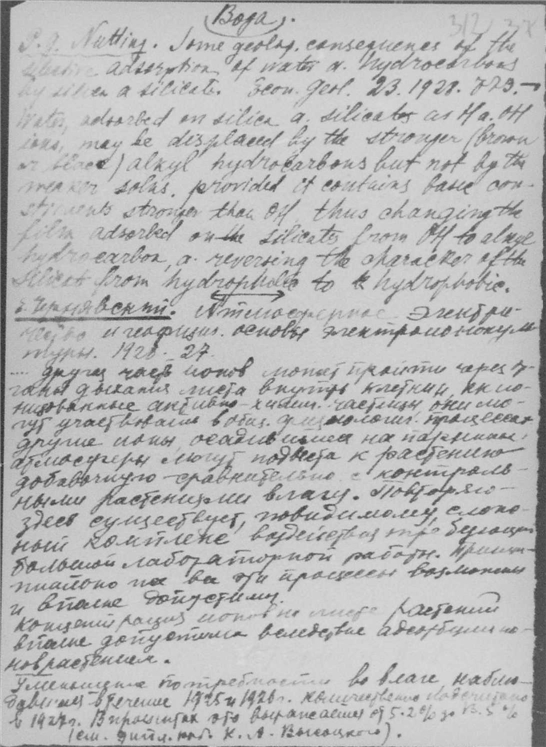 (Вода).
312
P. G. Nutting. Some geolog. consequences of the
selective adsorption of water a. hydrocarbons
by silica a silicates. Econ. Geol. 23. 1928. 773.—
Water, adsorbed on silica a. silicates as H a. OH
ions, may be displaced by the stronger (brown
or black) alkyl hydrocarbons but not by the
weaker solns. provided it contains basic con-
stituents stronger than OH, thus changing the
film adsorbed on the silicates from OH to alkyl
hydrocarbon, a. reversing the character of the
silicat from hydrophile to hydrophobic.
Чернявский. Атмосферное электри-
чество и геофизич. основы электромонокуль
туры. 1928. 27.
... другая часть ионов может пройти через ор-
ганы дыхания листа внутрь клетки, как ио-
низованные активно-химич. частицы они мо-
гут участвовать в общ. физиологич. процессах
другие ионы осадившиеся на
атмосферы могут подвести к растению
добавочную сравнительно с контроль-
ными растениями влагу. Повторяю
здесь существует, повидимому, слож-
ный комплекс воздействия требующий
большой лабораторной работы. Принци-
пиально же все эти процессы возможны
и вполне допустимы.
концентрация ионов на листе растений
вполне допустима вследствие адсорбции ио-
нов растением.
Уменьшение потребности во влаге наблю-
давшееся в течение 1925 и 1926 г. количественно подсчитано
в 1927 г. В процентах это выражается от 5.2% до %
(см. дипл. раб. К. А. Высоцкого).